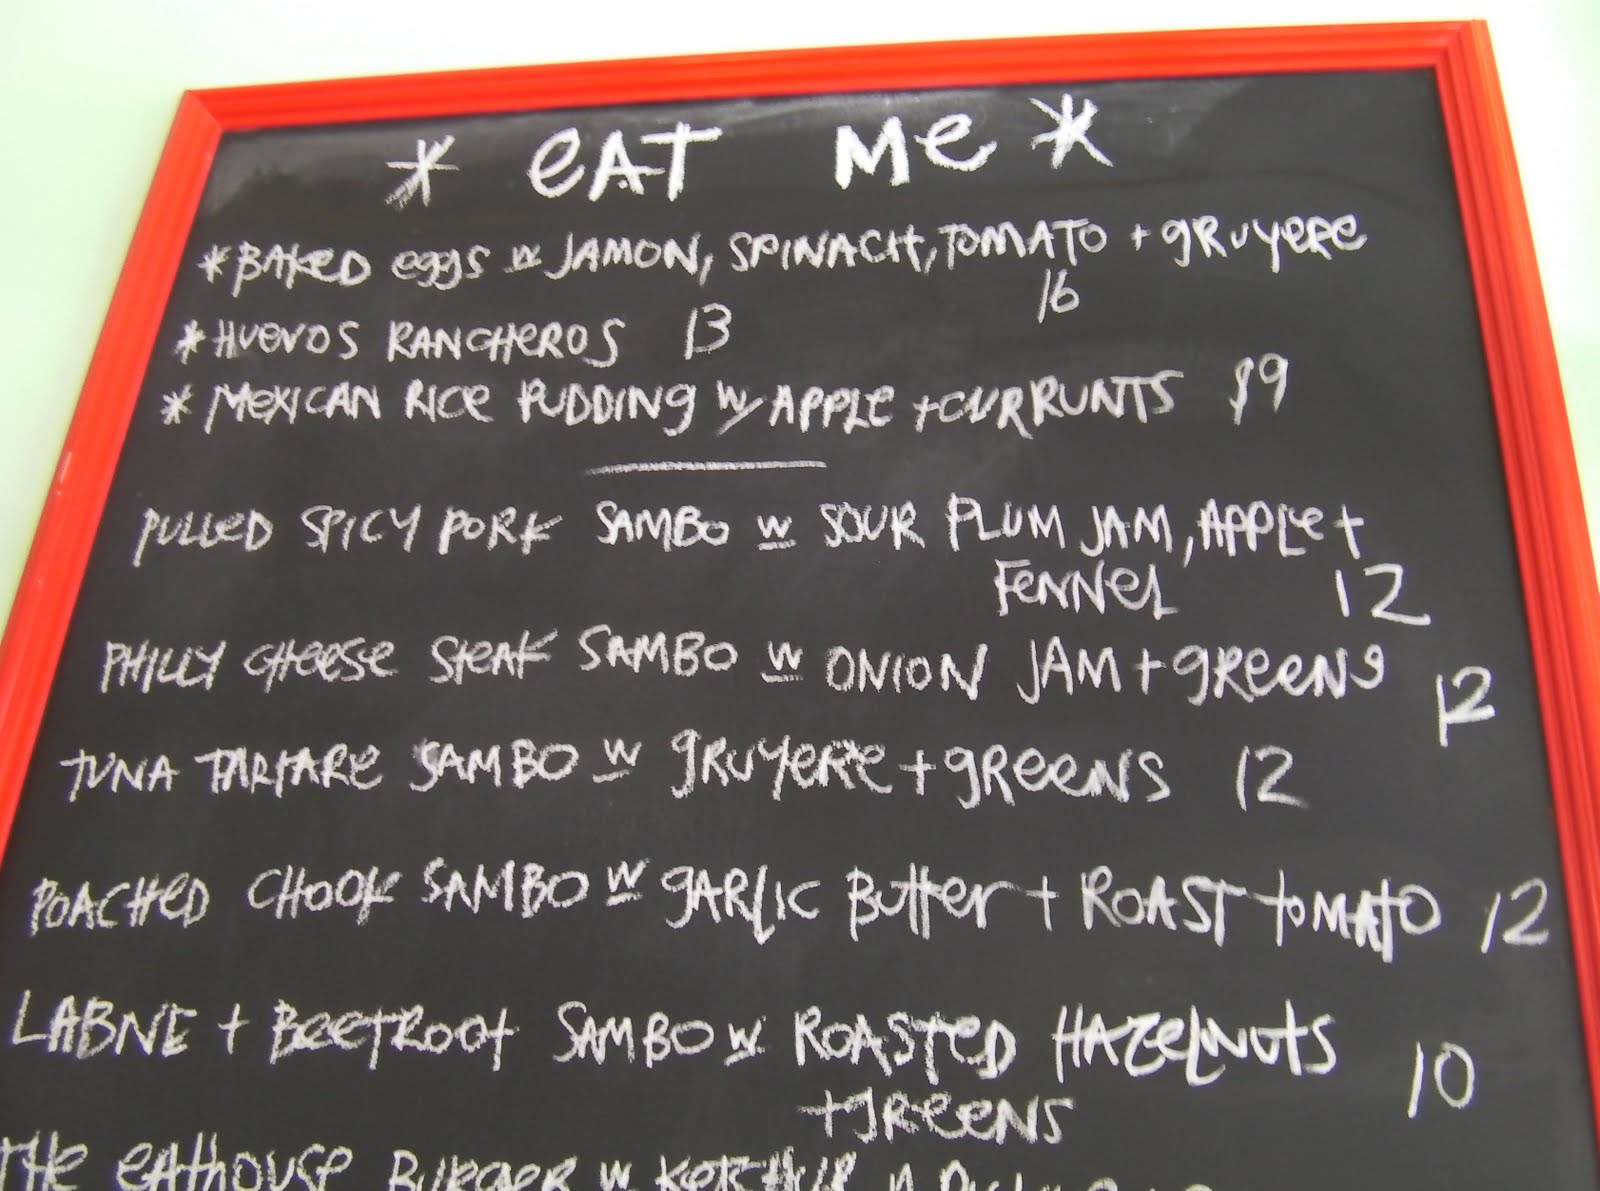 * eAT Me *
* BAKeD eggs w JAMON, SPINACH, TOMATO + gRUYeRe
16
* HUeVOS RANCHeROS 13
* MeXICAN RICe PUDDINg w/ APPLe + CURRUNTS $9
PULLeD SPICY PORK SAMBO w SOUR PLUM JAM, APPLe +
FeNNeL 12
PHILLY CHeeSe STeAK SAMBO w ONION JAM + gReeNS 12
TUNA TARTARe SAMBO w gRUYeRe + gReeNS 12
POACHeD CHOOK SAMBO w gARLIC BUtteR + ROAST TOMATO 12
LABNE + BeeTROOT SAMBO w ROASTeD HAZeLNUTS 10
+ gReeNS
THe eATHOUSe BURgeR w KeTCHUP